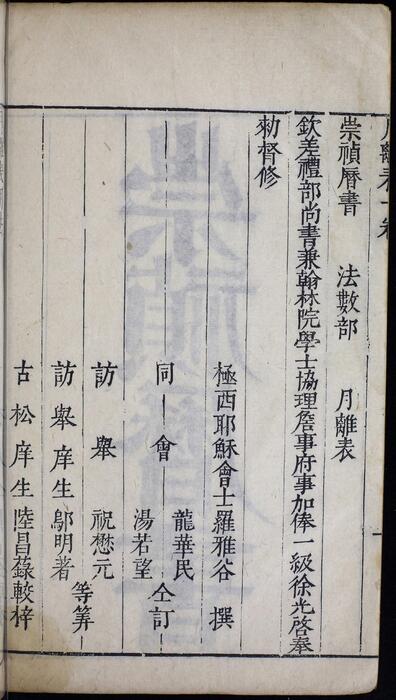 月離表一卷
崇禎曆書 法數部 月離表
欽差禮部尚書兼翰林院學士協理詹事府事加俸一級徐光啓奉
勑督修
極西耶穌會士羅雅谷 撰
龍華民
同會 仝訂
湯若望
訪舉 祝懋元
等筭
訪舉庠生鄔明著
古松庠生陸昌籙較梓